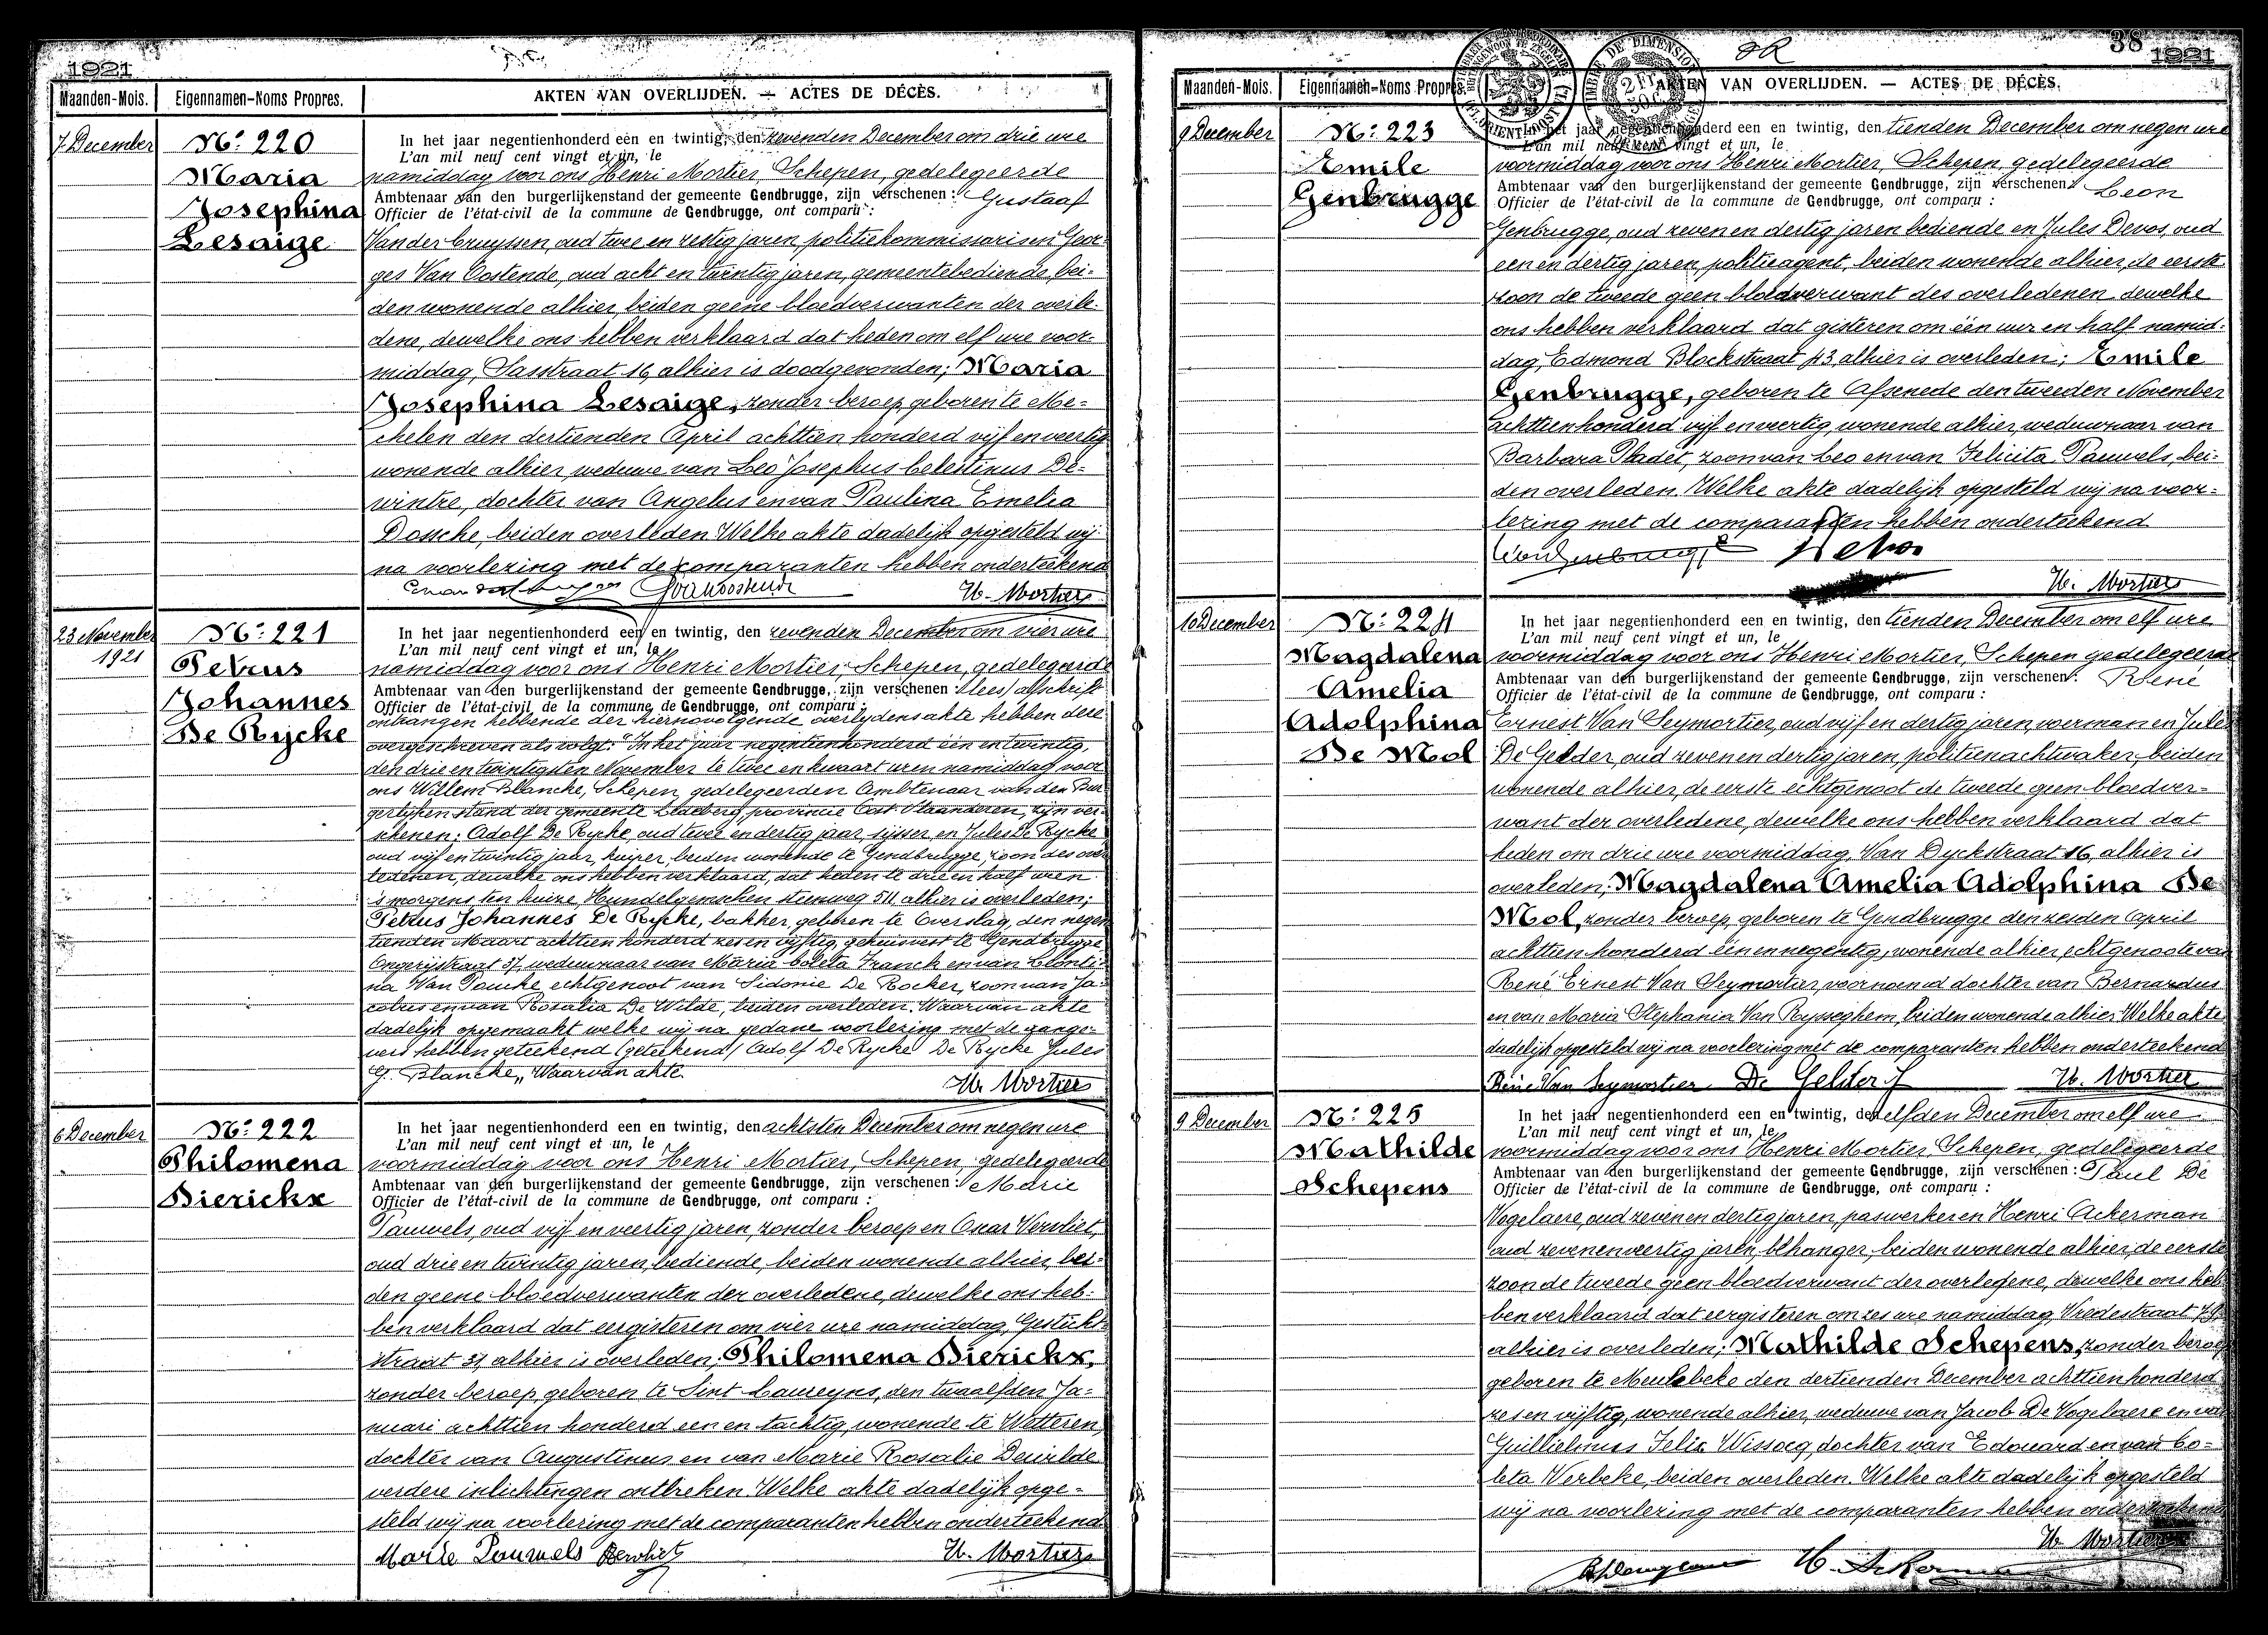 1921
Maanden-Mois. Eigennamen-Noms Propres. AKTEN VAN OVERLIJDEN. — ACTES DE DÉCÈS.
7 December
No: 220
Maria
Josephina
Lesaige
In het jaar negentienhonderd een en twintig, den zevenden December om drie ure
L'an mil neuf cent vingt et un, le
namiddag voor ons Henri Mortier, Schepen, gedelegeerde
Ambtenaar van den burgerlijkenstand der gemeente Gendbrugge, zijn verschenen: Gustaaf
Officier de l'état-civil de la commune de Gendbrugge, ont comparu :
Vander Cruyssen, oud twee en zestig jaren, politiekommissaris en Geor-
ges Van Oostende, oud acht en twintig jaren, gemeentebediende, bei-
den wonende alhier, beiden geene bloedverwanten der overle-
dene, dewelke ons hebben verklaard dat heden om elf ure voor-
middag, Sasstraat 16, alhier is doodgevonden; Maria
Josephina Lesaige, zonder beroep, geboren te Me-
chelen den dertienden April achttien honderd vijf en veertig
wonende alhier, weduwe van Leo Josephus Celestinus De-
wintre, dochter van Angelus en van Paulina Emelia
Dossche, beiden overleden. Welke akte dadelijk opgesteld wij
na voorlezing met de comparanten hebben onderteekend
H. Mortier
23 November
1921
No: 221
Petrus
Johannes
De Rycke
In het jaar negentienhonderd een en twintig, den zevenden December om vier ure
L'an mil neuf cent vingt et un, le
namiddag voor ons Henri Mortier, Schepen, gedelegeerde
Ambtenaar van den burgerlijkenstand der gemeente Gendbrugge, zijn verschenen: (lees) afschrift
Officier de l'état-civil de la commune de Gendbrugge, ont comparu :
ontvangen hebbende der hiernavolgende overlijdensakte hebben deze
overgeschreven als volgt: "In het jaar negentienhonderd een en twintig,
den drie en twintigsten November te twee en kwaart uren namiddag voor
ons Willem Blancke, Schepen, gedelegeerden Ambtenaar van den Bur-
gerlijken stand der gemeente Ledeberg, provincie Oost Vlaanderen, zijn ver-
schenen: Adolf De Rycke, oud twee en dertig jaar, sijsser, en Jules De Rycke
oud vijf en twintig jaar, kuiper, beiden wonende te Gendbrugge, zoon des over
ledenen, dewelke ons hebben verklaard, dat heden te drie en half uren
's morgens ten huize, Hundelgemschen steenweg 511, alhier is overleden;
Petrus Johannes De Rycke, bakker, geboren te Overslag, den negen
tienden Maart achttien honderd zes en vijftig, gehuisvest te Gendbrugge,
Ongerijstraat 37, weduwnaar van Maria Coleta Franck en van Clemti-
na Van Poucke, echtgenoot van Sidonie De Rocker, zoon van Ja-
cobus en van Rosalia De Wilde, beiden overleden. Waarvan akte
dadelijk opgemaakt welke wij na gedane voorlezing met de aange-
vers hebben geteekend (geteekend) Adolf De Rycke De Rycke Jules
G. Blancke,, Waarvan akte.
H. Mortier
6 December
No: 222
Philomena
Dierickx
In het jaar negentienhonderd een en twintig, den achtsten December om negen ure
L'an mil neuf cent vingt et un, le
voormiddag voor ons Henri Mortier, Schepen, gedelegeerde
Ambtenaar van den burgerlijkenstand der gemeente Gendbrugge, zijn verschenen: Marie
Officier de l'état-civil de la commune de Gendbrugge, ont comparu :
Pauwels, oud vijf en veertig jaren, zonder beroep en Omar Vervliet,
oud drie en twintig jaren, bediende, beiden wonende alhier, bei-
den geene bloedverwanten der overledene, dewelke ons heb-
ben verklaard dat eergisteren om vier ure namiddag, Gesticht
straat 37, alhier is overleden; Philomena Dierickx,
zonder beroep, geboren te Sint Laureyns, den twaalfden Ja-
nuari achttien honderd een en tachtig, wonende te Wetteren,
dochter van Augustinus en van Marie Rosalie Dewilde
verdere inlichtingen ontbreken. Welke akte dadelijk opge-
steld wij na voorlezing met de comparanten hebben onderteekend
Marie Pauwels Vervliet H. Mortier
38
1921
Maanden-Mois. Eigennamen-Noms Propres. AKTEN VAN OVERLIJDEN. — ACTES DE DÉCÈS.
TIMBRE DE DIMENSION
9 December
No: 223
Emile
Genbrugge
In het jaar negentienhonderd een en twintig, den tienden December om negen ure
L'an mil neuf cent vingt et un, le
voormiddag voor ons Henri Mortier, Schepen, gedelegeerde
Ambtenaar van den burgerlijkenstand der gemeente Gendbrugge, zijn verschenen: Leon
Officier de l'état-civil de la commune de Gendbrugge, ont comparu :
Genbrugge, oud zeven en dertig jaren bediende en Jules Devos, oud
een en dertig jaren, politieagent, beiden wonende alhier, de eerste
zoon de tweede geen bloedverwant des overledenen, dewelke
ons hebben verklaard dat gisteren om één uur en half namid-
dag, Edmond Blockstraat 43, alhier is overleden; Emile
Genbrugge, geboren te Assenede den tweeden November
achttienhonderd vijf en veertig, wonende alhier, weduwnaar van
Barbara Pladet, zoon van Leo en van Felicita Pauwels, bei-
den overleden. Welke akte dadelijk opgesteld wij na voor-
lezing met de comparanten hebben onderteekend
H. Mortier
10 December
No: 224
Magdalena
Amelia
Adolphina
De Mol
In het jaar negentienhonderd een en twintig, den tienden December om elf ure
L'an mil neuf cent vingt et un, le
voormiddag voor ons Henri Mortier, Schepen gedelegeerde
Ambtenaar van den burgerlijkenstand der gemeente Gendbrugge, zijn verschenen: René
Officier de l'état-civil de la commune de Gendbrugge, ont comparu :
Ernest Van Seymortier, oud vijf en dertig jaren, voerman en Jules
De Gelder, oud zeven en dertig jaren, politienachtwaker, beiden
wonende alhier, de eerste echtgenoot de tweede geen bloedver-
want der overledene, dewelke ons hebben verklaard dat
heden om drie ure voormiddag, Van Dyckstraat 16, alhier is
overleden; Magdalena Amelia Adolphina De
Mol, zonder beroep, geboren te Gendbrugge den zesden April
achttien honderd één en negentig, wonende alhier, echtgenoote van
René Ernest Van Seymortier, voornoemd dochter van Bernardus
en van Maria Stephania Van Rysseghem, beiden wonende alhier. Welke akte
dadelijk opgesteld wij na voorlezing met de comparanten hebben onderteekend
René Van Seymortier De Gelder J H. Mortier
9 December
No: 225
Mathilde
Schepens
In het jaar negentienhonderd een en twintig, den elfden December om elf ure
L'an mil neuf cent vingt et un, le
voormiddag voor ons Henri Mortier, Schepen, gedelegeerde
Ambtenaar van den burgerlijkenstand der gemeente Gendbrugge, zijn verschenen: Paul De
Officier de l'état-civil de la commune de Gendbrugge, ont comparu :
Vogelaere, oud zeven en dertig jaren, paswerker en Henri Ackerman
oud zeven en veertig jaren, behanger, beiden wonende alhier, de eerste
zoon de tweede geen bloedverwant der overledene, dewelke ons heb-
ben verklaard dat eergisteren om zes ure namiddag, Vredestraat 79
alhier is overleden; Mathilde Schepens, zonder beroep
geboren te Meulebeke den dertienden December achttienhonderd
zes en vijftig, wonende alhier, weduwe van Jacob De Vogelaere en van
Guillielmus Felix Wissocq, dochter van Edouard en van Co-
leta Verbeke, beiden overleden. Welke akte dadelijk opgesteld
wij na voorlezing met de comparanten hebben onderteekend
H. Mortier
H. Ackerman